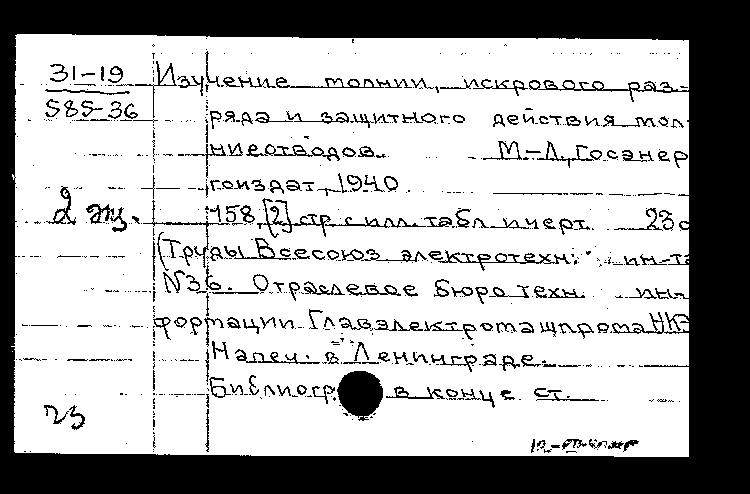 31-19
585-36
Изучение молнии, искрового раз-
ряда и защитного действия мол-
ниеотводов. М.-Л., Госэнер
гоиздат, 1940.
2 экз.
158,[2] стр. с илл. табл. и черт. 23с
(Труды Всесоюз. электротехн. ин-та
№36. Отраслевое бюро техн. ин-
формации Главэлектромашпрома НКЭ
Напеч. в Ленинграде.
Библиогр. в конце ст.